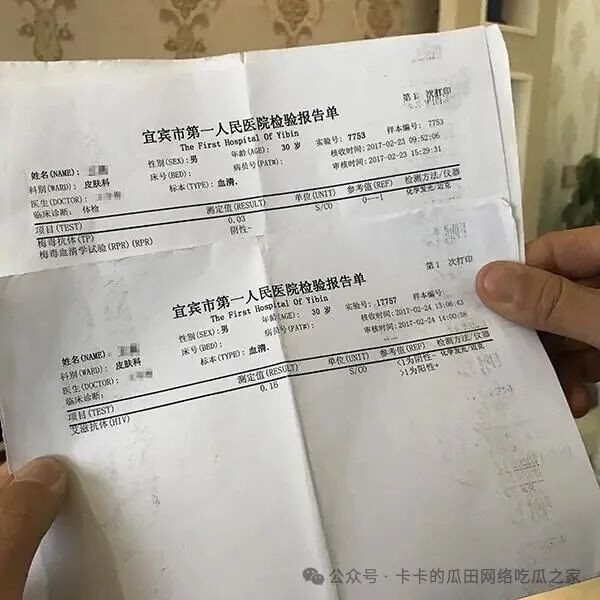 第1 次打印
宜宾市第一人民医院检验报告单
The First Hospital Of Yibin
实验号: 7753 样本编号: 7753
姓名(NAME): 性别(SEX): 男 年龄(AGE): 30 岁 核收时间: 2017-02-23 09:52:06
科别(WARD): 皮肤科 床号(BED): 病员号(PAT#): 审核时间: 2017-02-23 15:29:31
医生(DOCTOR): 标本(TYPE): 血清,
临床诊断: 体检
项目(TEST) 测定值(RESULT) 单位(UNIT) 参考值(REF) 检测方法/仪器
梅毒抗体(TP) 0.03 S/CO 0---1 化学发光/迈克
梅毒血清学试验(RPR)(RPR) 阴性-
第1 次打印
宜宾市第一人民医院检验报告单
The First Hospital Of Yibin
实验号: 17757 样本编号:
姓名(NAME): 性别(SEX): 男 年龄(AGE): 30 岁 核收时间: 2017-02-24 13:06:43
科别(WARD): 皮肤科 床号(BED): 病员号(PAT#): 审核时间: 2017-02-24 14:00:38
医生(DOCTOR): 标本(TYPE): 血清,
临床诊断:
项目(TEST) 测定值(RESULT) 单位(UNIT) 参考值(REF) 检测方法/仪器
艾滋抗体(HIV) 0.16 S/CO <1为阴性- 化学发光/迈克
>1为阳性+
公众号·卡卡的瓜田网络吃瓜之家